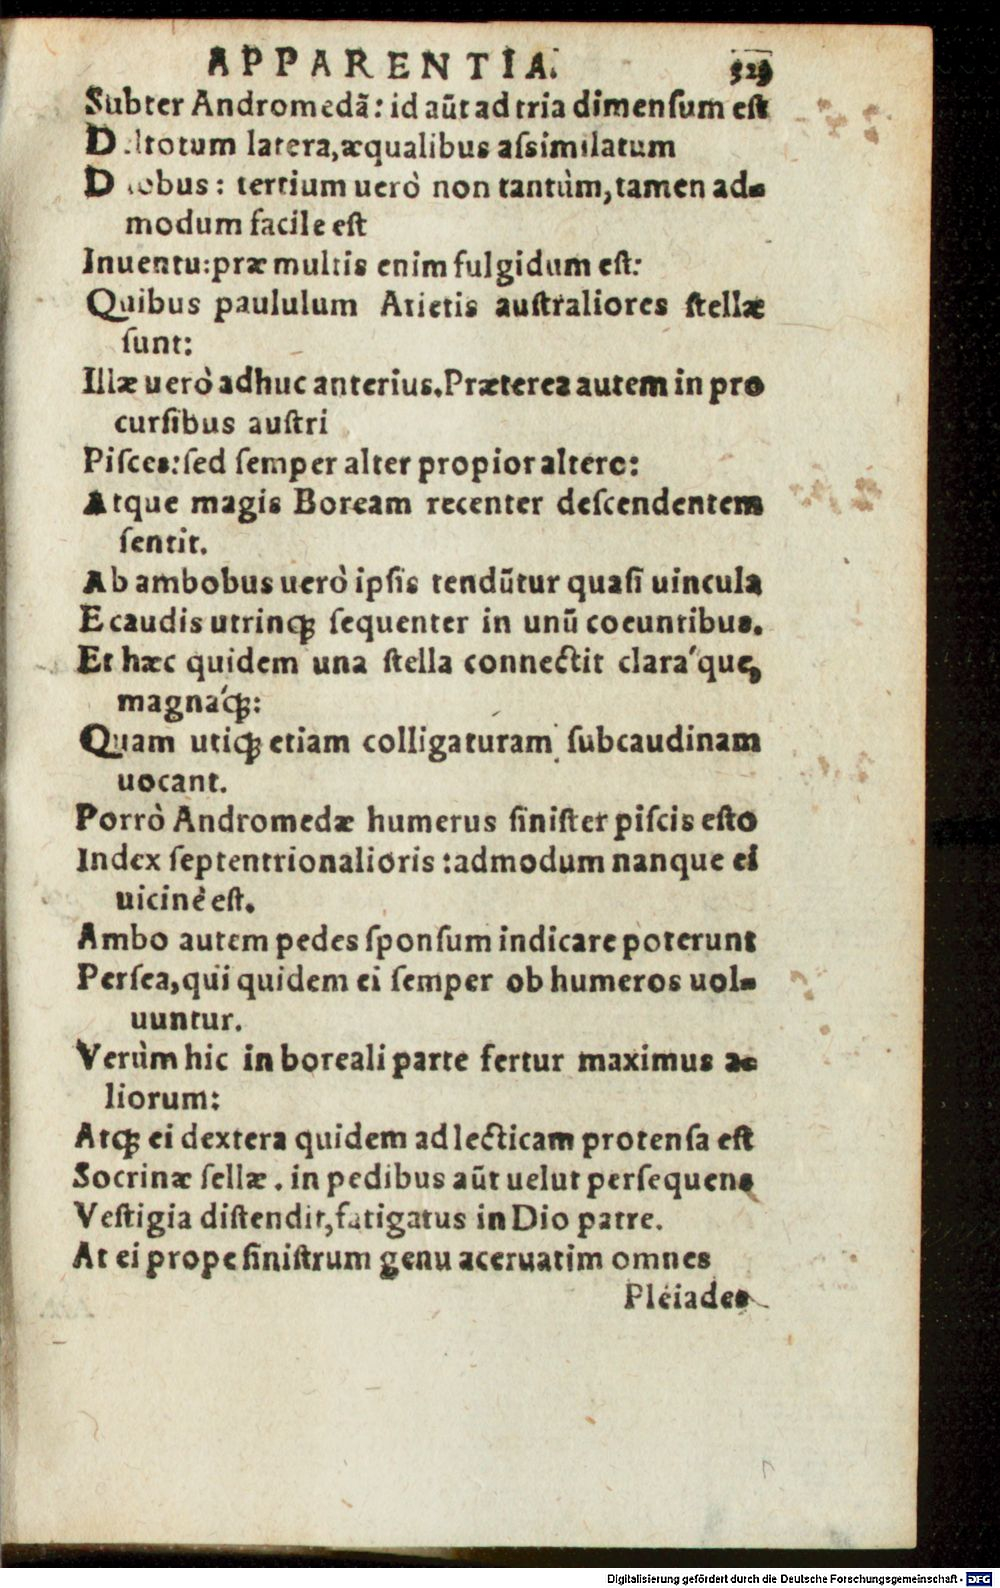 APPARENTIA. 329
Subter Andromedã: id aũt ad tria dimensum est
D.ltotum latera, æqualibus assimilatum
D  obus: tertium uerò non tantùm, tamen ad-
modum facile est
Inuentu: præ multis enim fulgidum est:
Quibus paululum Arietis australiores stellæ
sunt:
Illæ uerò adhuc anterius. Præterea autem in pro
cursibus austri
Pisces: sed semper alter propior altero:
Atque magis Boream recenter descendentem
sentit.
Ab ambobus uerò ipsis tendũtur quasi uincula
E caudis utrinq; sequenter in unũ coeuntibus.
Et hæc quidem una stella connectit clara´que,
magna´q;:
Quam utiq; etiam colligaturam subcaudinam
uocant.
Porrò Andromedæ humerus sinister piscis esto
Index septentrionalioris: admodum nanque ei
uicinè est.
Ambo autem pedes sponsum indicare poterunt
Persea, qui quidem ei semper ob humeros uol-
uuntur.
Verùm hic in boreali parte fertur maximus a-
liorum:
Atq; ei dextera quidem ad lecticam protensa est
Socrinæ sellæ. in pedibus aũt uelut persequens
Vestigia distendit, fatigatus in Dio patre.
At ei prope sinistrum genu aceruatim omnes
Pleiades
Digitalisierung gefördert durch die Deutsche Forschungsgemeinschaft - DFG